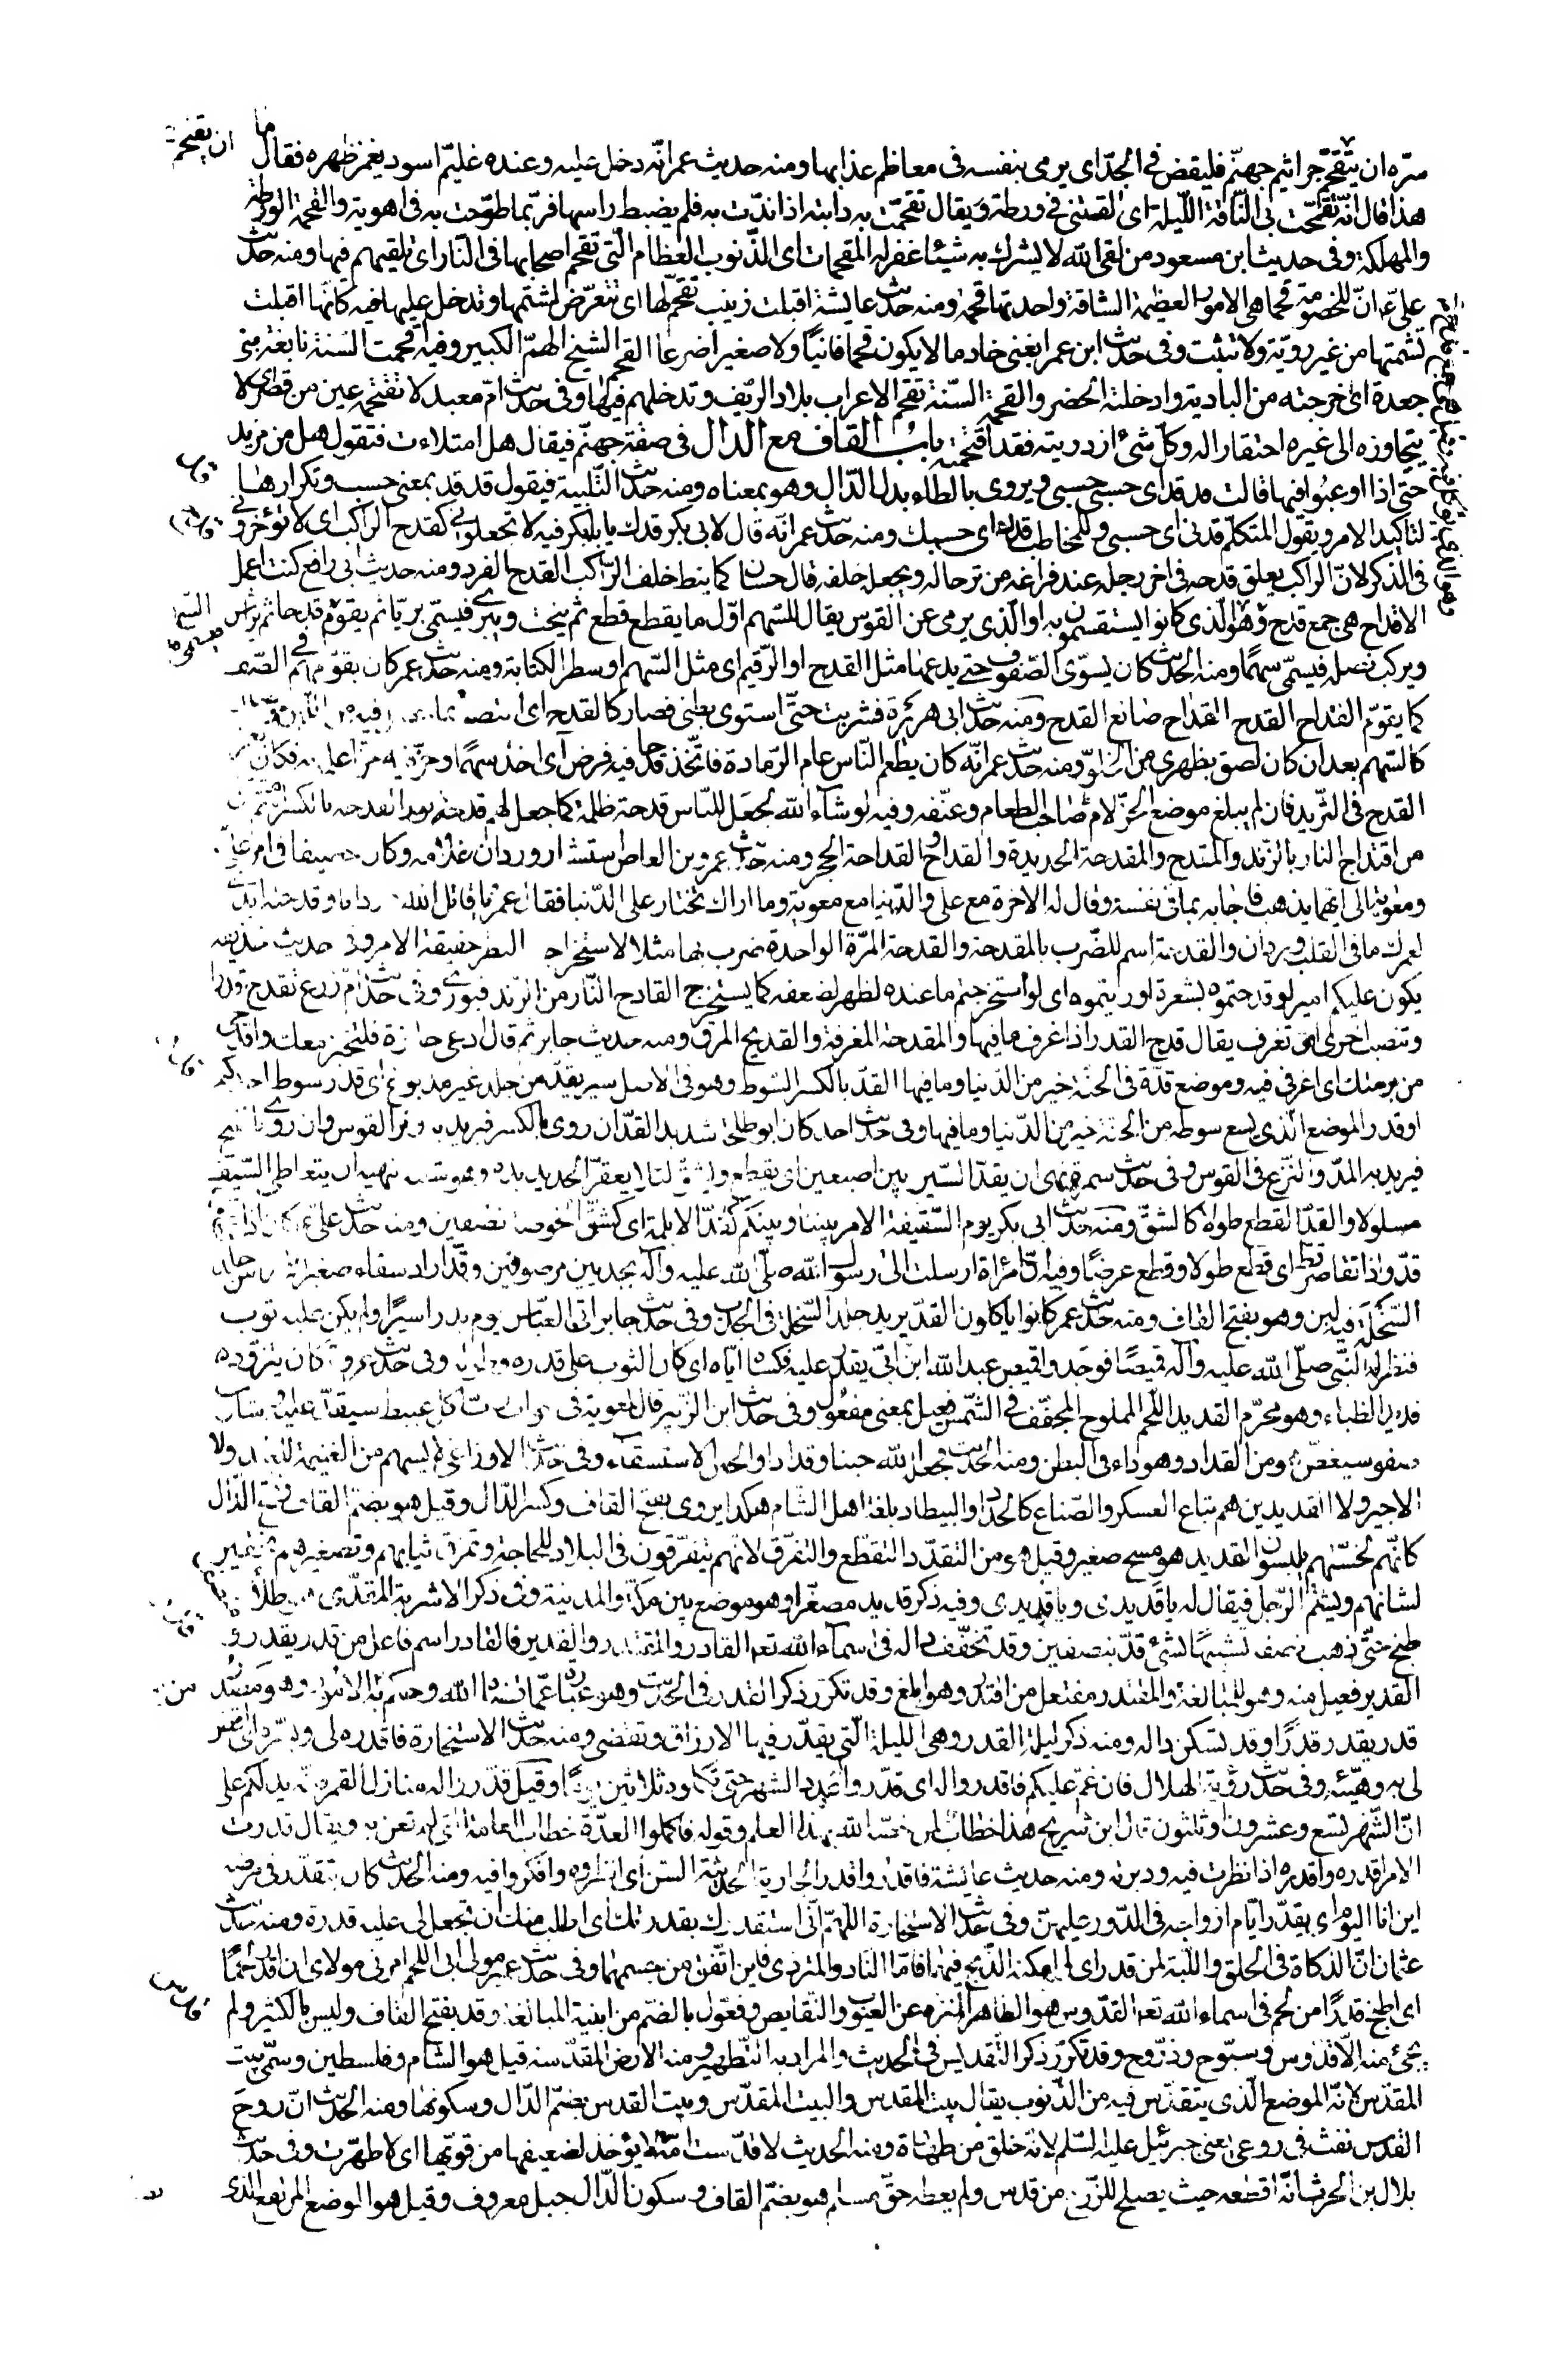 سرّه ان يتقحّم جراثيم جهنّم فليقض فى الجدّ اى يرمى بنفسه فى معاظم عذابها ومنه حديث عمر انّه دخل عليه وعنده غليّم اسود يغمز ظهره فقال ما
هذا قال انّه تقحّمت بى النّاقة اللّيلة اى القتنى فى ورطة ويقال تقحّمت به دابته اذا ندّت به فلم يضبط راسها فربّما طوّحت به فى اهوية والقحمة الورطة
والمهلكة وفى حديث ابن مسعود من لقى الله لا يشرك به شيئا غفر له المقحمات اى الذّنوب العظام الّتى تقحم اصحابها فى النّار اى تلقيهم فيها ومنه حديث
علىّ انّ للخصومة قحما هى الامور العظيمة الشاقة واحدتها قحمة ومنه حديث عايشة اقبلت زينب تقحّم لها اى تتعرّض لشتمها وتدخل عليها فيه كانّها اقبلت
تشتمها من غير رويّة ولا تثبت وفى حديث ابن عمر ابغنى خادما لا يكون قحما فانيًا ولا صغيرا ضرعا القحم الشيخ الهمّ الكبير وفيه اقحمت السّنة نابغة بنى
جعدة اى اخرجته من البادية وادخلته الحضر والقحمة السّنة تقحم الاعراب بلاد الرّيف وتدخلهم فيها وفى حديث امّ معبد لا تقتحمه عين من قصر اى لا
يتجاوزه الى غيره احتقارا له وكلّ شئ ازدريته فقد اقتحمته باب القاف مع الدال فى صفة جهنّم فيقال هل امتلاءت فتقول هل من مزيد
حتى اذا اوعبوا فيها قالت قد قد اى حسبى حسبى ويروى بالطاء بدل الدّال وهو بمعناه ومنه حديث التّلبية فيقول قد قد بمعنى حسب وتكرارها
لتاكيد الامر ويقول المتكلّم قدنى اى حسبى وللمخاطب قدك اى حسبك ومنه حديث عمر انّه قال لابى بكر قدك يا بابكر فيه لا تجعلونى كقدح الراكب اى لا تؤخرونى
فى الذّكر لانّ الراكب يعلق قدحه فى اخر رحله عند فراغه من ترحاله ويجعله خلفه قال حسان كما نيط خلف الرّاكب القدح الفرد ومنه حديث ابى رافع كنت اعمل
الاقداح هى جمع قدح وهو الّذى كانوا يستقسمون به او الّذى يرمى عن القوس يقال للسّهم اوّل ما يقطع قطع ثم ينحت ويبرى فيسمّى بريّا ثم يقوّم قدحا ثم يراش
ويركب نصله فيسمّى سهمًا ومنه الحديث كان يسوّى الصّفوف حتى يدعها مثل القدح او الرّقيم اى مثل السّهم او سطر الكتابة ومنه حديث عمر كان يقوّمهم فى الصّف
كما يقوّم القدّاح القدح القدّاح صانع القدح ومنه حديث ابى هريرة فشربت حتّى استوى بطنى فصار كالقدح اى انتصب
كالسّهم بعد ان كان لصق بظهرى من الخلو ومنه حديث عمر انّه كان يطعم النّاس عام الرّمادة فاتّخذ قدحا فيه فرض اى اخذ سهمًا وحزّ فيه
القدح فى الثّريد فان لم يبلغ موضع الحزّ لام صاحب الطعام وعنّفه وفيه لو شاء الله لجعل للنّاس قدحة ظلمة كما جعل لهم قدحة نور القدحة بالكسر
من اقتداح النار بالزّند والمقدح والمقدحة الحديدة والقداح والقداحة الحجر ومنه حديث عمرو بن العاص استشار وردان غلامه وكان حصيفا فى امر علىّ
ومعوية الى ايهما يذهب فاجابه بما فى نفسه وقال له الاخرة مع على والدّنيا مع معوية وما اراك تختار على الدّنيا فقال عمرو يا قاتل الله وردانا وقدحته ابدى
لعمرك ما فى القلب وردان والقدحة اسم للضّرب بالمقدحة والقدحة المرّة الواحدة ضرب بها مثلا لاستخراجه بالنظر حقيقة الامر وفى حديث حذيفة
يكون عليكم امير لو قدحتموه بشعرة اوريتموه اى لو استخرجتم ما عنده لظهر لضعفه كما يستخرج القادح النّار من الزند فيورى وفى حديث امّ زرع تقدح قدرا
وتنصب اخرى اى تغرف يقال قدح القدر اذا غرف ما فيها والمقدحة المغرفة والقديح المرق ومنه حديث جابر ثم قال ادعى خابزة فلتخبز معك واقدحى
من برمتك اى اغرفى فيه وموضع قدّه فى الجنّة خير من الدّنيا وما فيها القدّ بالكسر السّوط وهو فى الاصل سير يقدّ من جلد غير مدبوغ اى قدر سوط احدكم
او قدر الموضع الّذى يسع سوطه من الجنّة خير من الدّنيا وما فيها وفى حديث احد كان ابو طلحة شديد القدّ ان روى بالكسر فيريد به وتر القوس وان روى بالفتح
فيريد به المدّ والنّزع فى القوس وفى حديث سمرة نهى ان يقدّ السّير بين اصبعين اى يقطع ويشق لئلا يعقر الحديد يده وهو شبيه بنهيه ان يتعاطى السّيف
مسلولا والقدّ القطع طولا كالشقّ ومنه حديث ابى بكر يوم السّقيفة الامر بيننا وبينكم كقدّ الابلمة اى كشقّ الخوصة نصفين ومنه حديث علىّ كان اذا تطاول
قدّ واذا تقاصر قطّ اى قطع طولا وقطع عرضًا وفيه انّ امرأة ارسلت الى رسول الله صلّى الله عليه وآله بجديين مرضوفين وقدّ اراد سقاء صغيرا من جلد
السّخلة فيه لبن وهو بفتح القاف ومنه حديث عمر كانوا ياكلون القدّ يريد جلد السّخلة فى الجدب وفى حديث جابر اتى العبّاس يوم بدر اسيرًا ولم يكن عليه ثوب
فنظر له النّبى صلّى الله عليه وآله قميصًا فوجدوا قميص عبد الله ابن ابىّ يقدّ عليه فكساه ايّاه اى كان الثوب على قدره وطوله وفى حديث عروة كان يتزوّد
قديد الظباء وهو محرّم القديد اللّحم المملوح المجفّف فى الشّمس فعيل بمعنى مفعول وفى حديث ابن الزّبير قال لمعوية فى جواب ربّ آكل عبيط سيقدّ عليه وشارب
صفو سيغصّ هو من القداد وهو داء فى البطن ومنه الحديث فجعله الله حبنا وقدادا والحبن الاستسقاء وفى حديث الاوزاعى لا يسهم من الغنيمة للعبد ولا
الاجير ولا القديديين هم تباع العسكر والصّنّاع كالحدّاد والبيطار بلغة اهل الشّام هكذا يروى بفتح القاف وكسر الدّال وقيل هو بضمّ القاف وفتح الدّال
كانّهم لخسّتهم يلبسون القديد هو مسح صغير وقيل هو من التقدّد التقطّع والتفرّق لانّهم يتفرّقون فى البلاد للحاجة وتمزّق ثيابهم وتصغيرهم تحقير
لشانهم ويشتم الرّجل فيقال له يا قديدى ويا قديدى وفيه ذكر قديد مصغّرا وهو موضع بين مكّة والمدينة وفى ذكر الاشربة المقدّى هو طلاء
طبخ حتّى ذهب نصفه تشبيهًا بشئ قدّ بنصفين وقد تخفّف داله فى اسماء الله تعا القادر والمقتدر والقدير فالقادر اسم فاعل من قدر يقدر و
القدير فعيل منه وهو للمبالغة والمقتدر مفتعل من اقتدر وهو ابلغ وقد تكرّر ذكر القدر فى الحديث وهو عبارة عمّا قضاه الله وحكم به من الامور وهو مصدر
قدر يقدر قدرًا وقد تسكن داله ومنه ذكر ليلة القدر وهى الليلة الّتى يقدّر فيها الارزاق وتقضى ومنه حديث الاستخارة فاقدره لى ويسّره اى اقض
لى به وهيّئه وفى حديث رؤية الهلال فان غمّ عليكم فاقدروا له اى قدّروا عدد الشهر حتى تكملوه ثلاثين يومًا وقيل قدّروا له منازل القمر فانه يدلكم على
انّ الشّهر تسع وعشرون او ثلثون قال ابن شريح هذا خطاب لمن خصّه الله بهذا العلم وقوله فاكملوا العدّة خطاب للعامة التى لم تعن به ويقال قدرت
الامر اقدره واقدره اذا نظرت فيه ودبرته ومنه حديث عائشة فاقدروا قدر الجارية الحديثة السّن اى انظروه وافكروا فيه ومنه الحديث كان يتقدّر فى مرضه
اين انا اليوم اى يقدّر ايّام ازواجه فى الدّور عليهنّ وفى حديث الاستخارة اللّهمّ انّى استقدرك بقدرتك اى اطلب منك ان تجعل لى عليه قدرة ومنه حديث
عثمان انّ الذكاة فى الحلق واللّبة لمن قدر اى لمن امكنه الذّبح فيهما فامّا النّاد والمتردى فاين اتّفق من جسمهما وفى حديث عمير مولى ابى اللحم امرنى مولاى ان اقدر لحمًا
اى اطبخ قدرًا من لحم فى اسماء الله تعا القدّوس هو الطاهر المنزه عن العيوب والنّقايص وفعّول بالضّم من ابنية المبالغة وقد يفتح القاف وليس بالكثير ولم
يجئ منه الّا قدّوس وسبّوح وذرّوح وقد تكرّر ذكر التّقديس فى الحديث والمراد به التّطهير ومنه الارض المقدّسة قيل هو الشّام وفلسطين وسمّى بيت
المقدّس لانّه الموضع الّذى يتقدّس فيه من الذّنوب يقال بيت المقدس والبيت المقدّس وبيت القدس بضمّ الدّال وسكونها ومنه الحديث انّ روح
القدس نفث فى روعى يعنى جبرئيل عليه السّلم لانّه خلق من طهارة ومنه الحديث لا قدّست امّة لا يؤخذ لضعيفها من قويّها اى لا طهّرت وفى حديث
بلال بن الحرث انّه اقطعه حيث يصلح للزّرع من قدس ولم يعطه حقّ مسلم هو بضمّ القاف وسكون الدّال جبل معروف وقيل هو الموضع المرتفع الذى